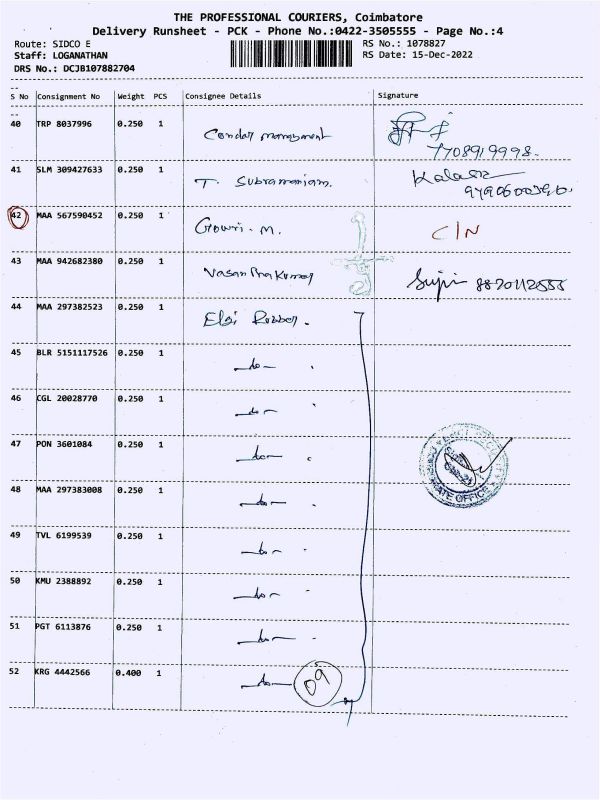 THE PROFESSIONAL COURIERS, Coimbatore
Delivery Runsheet - PCK - Phone No.:0422-3505555 - Page No.:4
Route: SIDCO E RS No.: 1078827
Staff: LOGANATHAN RS Date: 15-Dec-2022
DRS No.: DCJB107882704
S No Consignment No Weight PCS Consignee Details Signature
40 TRP 8037996 0.250 1
7708919998.
41 SLM 309427633 0.250 1 T. Subramaniam.
Kalasie
42 MAA 567590452 0.250 1 Gowri. M. C/N
43 MAA 942682380 0.250 1
44 MAA 297382523 0.250 1 Elgi Rubber.
45 BLR 5151117526 0.250 1 -do-
46 CGL 20028770 0.250 1 -do-
47 PON 3601084 0.250 1 -do-
48 MAA 297383008 0.250 1 -do-
49 TVL 6199539 0.250 1 -do-
50 KMU 2388892 0.250 1 -do-
51 PGT 6113876 0.250 1 -do-
52 KRG 4442566 0.400 1 -do- 09